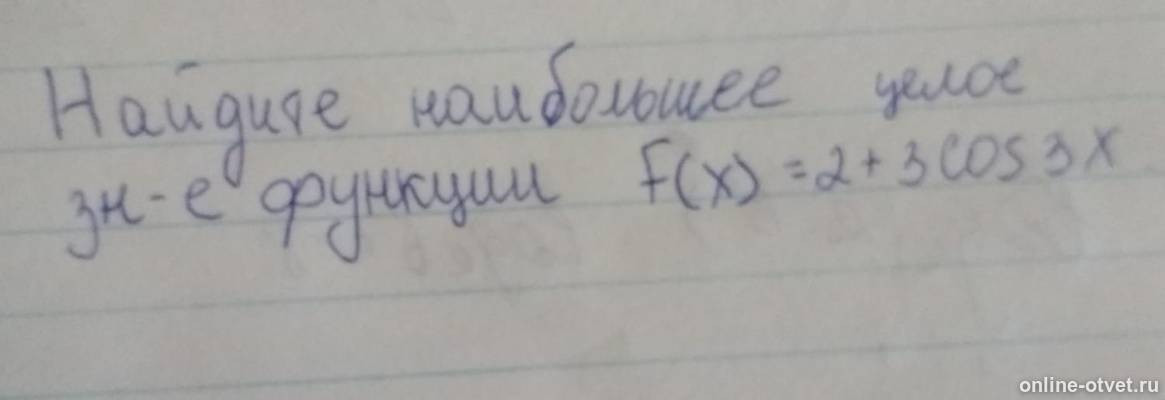 Найдите наибольшее целое
зн-е функции F(x) = 2 + 3 cos 3x
online-otvet.ru